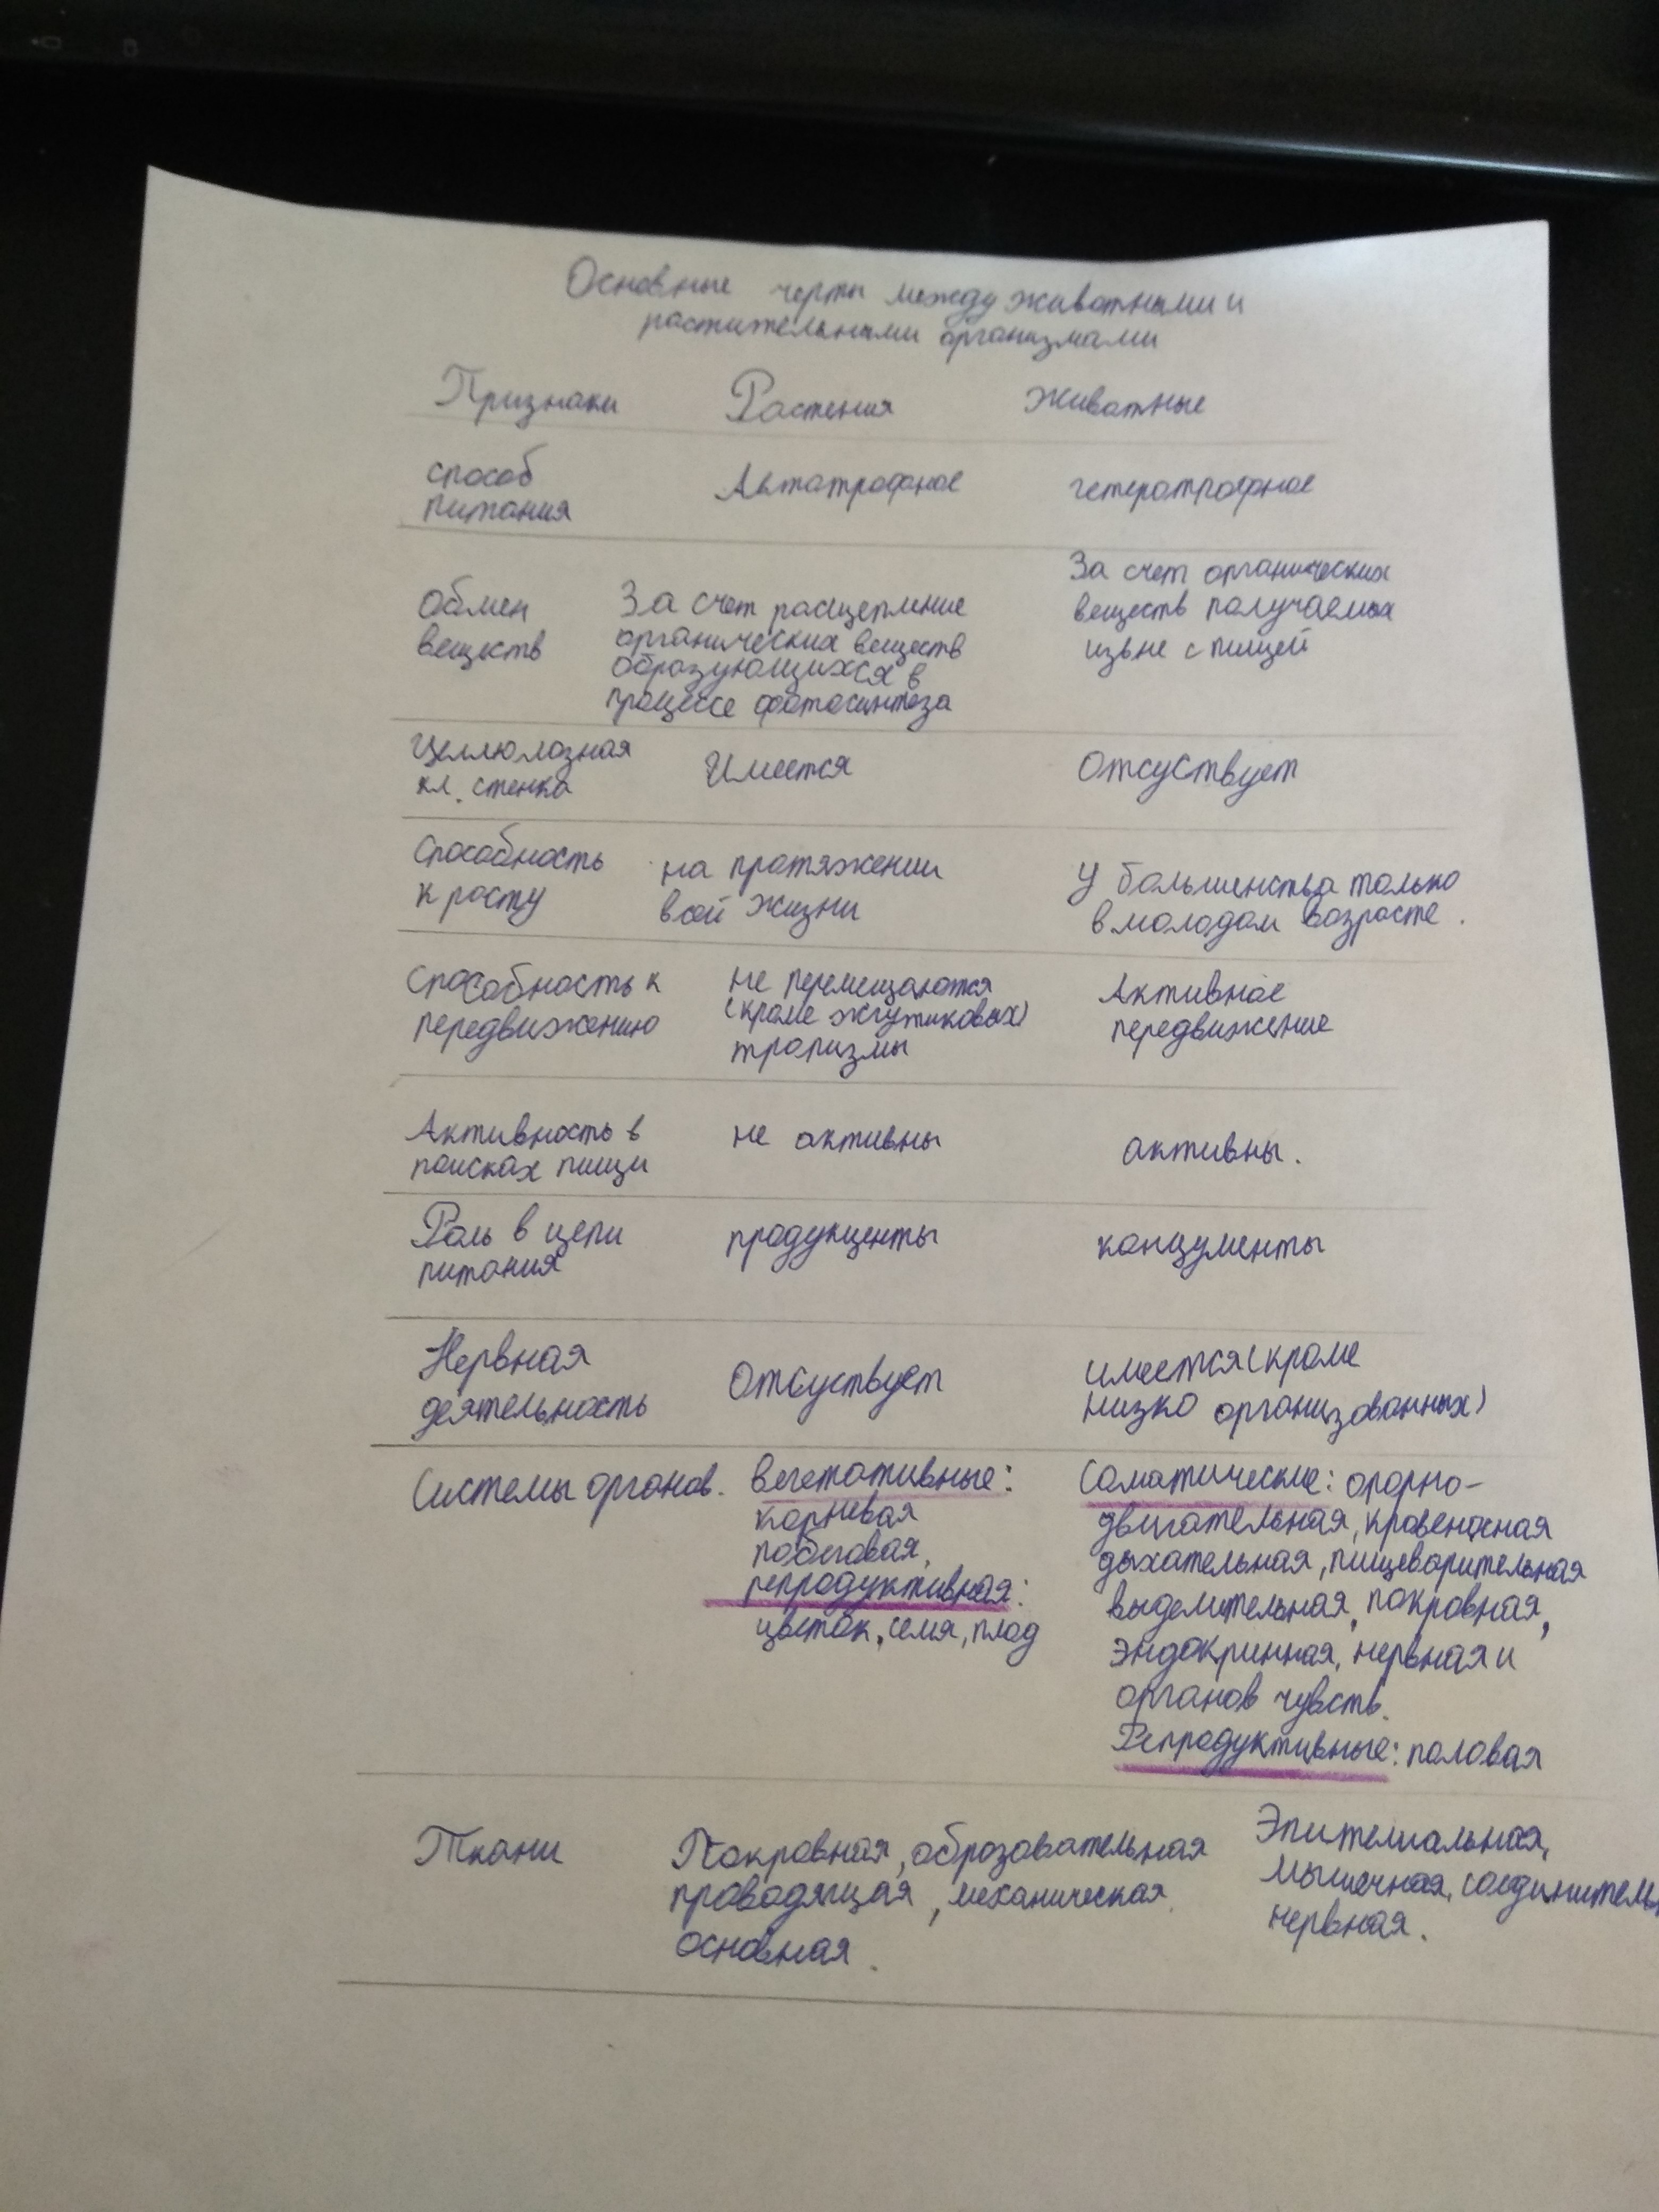 Основные черты между животными и
растительными организмами
Признаки Растения Животные
способ
питания
Автотрофное
гетеротрофное
Обмен
веществ
За счет расщепление
органических веществ
образующихся в
процессе фотосинтеза
За счет органических
веществ получаемых
извне с пищей
Целлюлозная
кл. стенка
Имеется
Отсуствует
Способность
к росту
на протяжении
всей жизни
У большинства только
в молодом возрасте.
Способность к
передвижению
не перемещаются
(кроме жгутиковых)
тропизмы
Активное
передвижение
Активность в
поисках пищи
не активны
активны.
Роль в цепи
питания
продукценты
концументы
Нервная
деятельность
Отсуствует
имеется (кроме
низко организованных)
Системы органов.
вегетативные:
корневая
побеговая,
репродуктивная:
цветок, семя, плод
Соматические: опорно-
двигательная, кровеносная
дыхательная, пищеварительная
выделительная, покровная,
эндокринная, нервная и
органов чувств.
Репродуктивные: половая
Ткани
Покровная, оброзовательная
проводящая, механическая
основная.
Эпителиальная,
мышечная, соединительн
нервная.